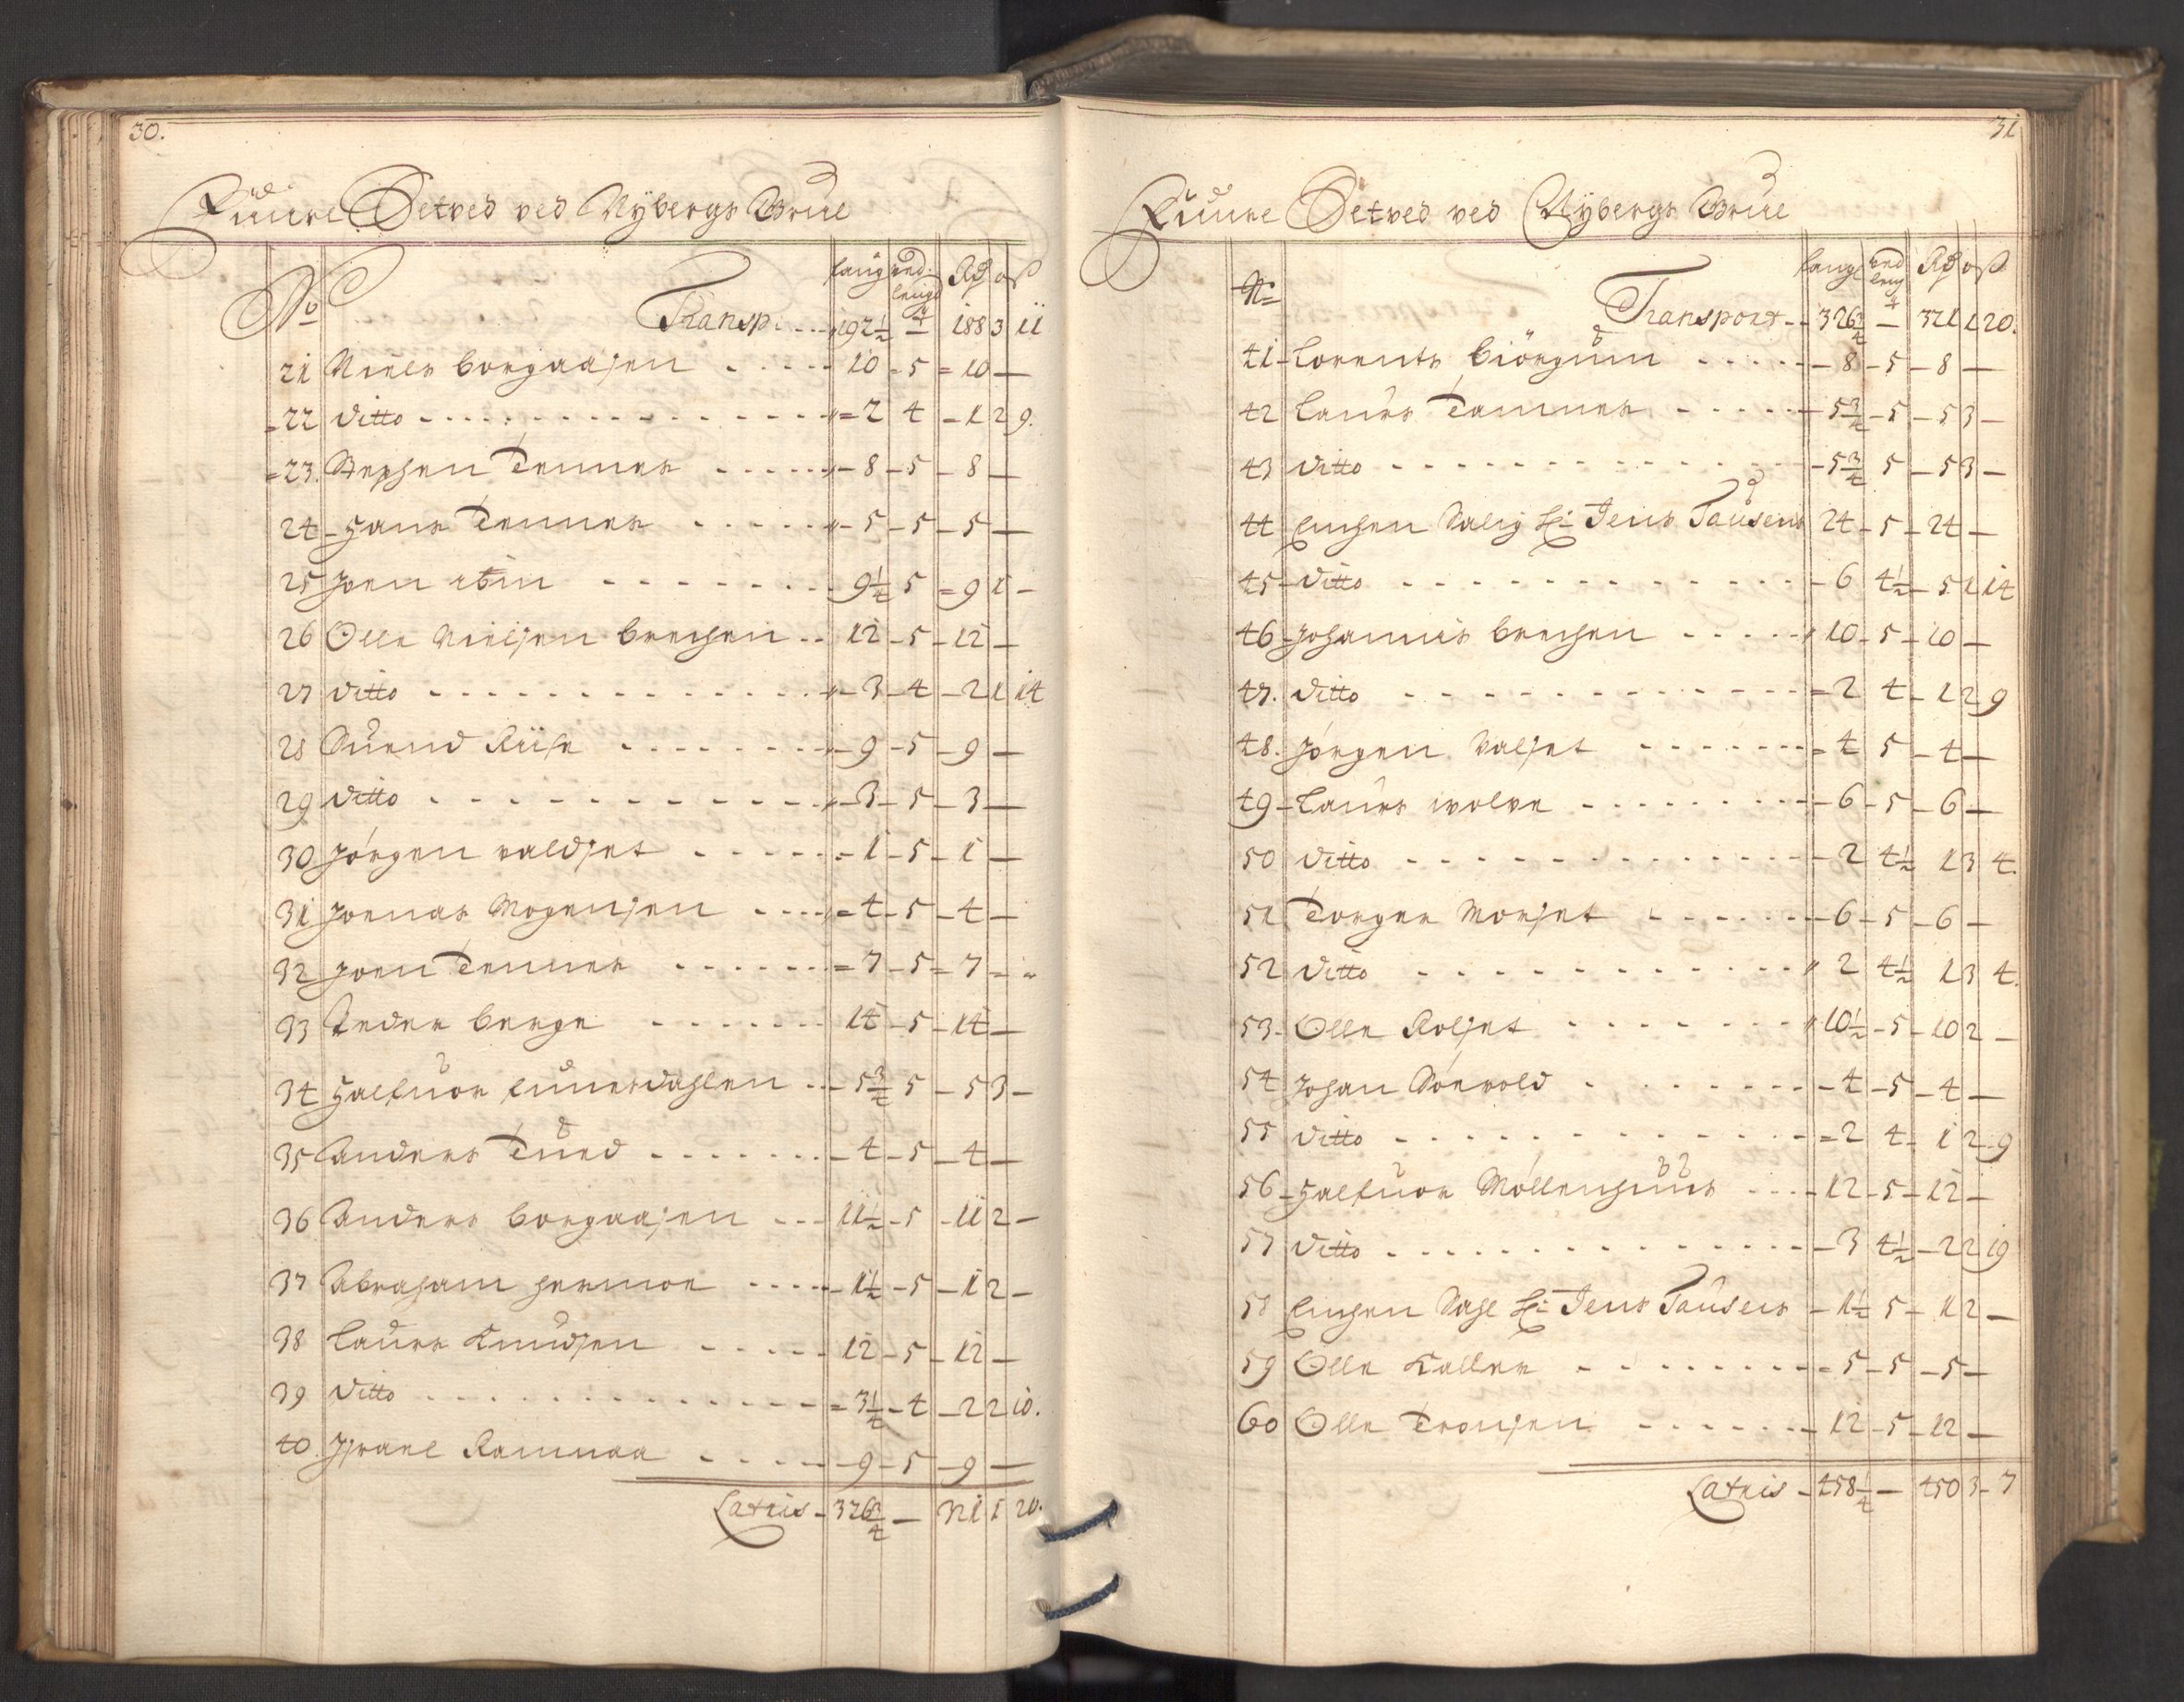 30.
Fuure Setved ved Nybergs Brue
No Transp: 192½ 188 3 11
21 Niels borgaasen 10 5 10
22 ditto 2 4 1 2 9.
23. Stephen Temmer 8 5 8
24 Hans Temmer 5 5 5
25 Joen 9¼ 5 9 1
26 Olle Nielsen brechen 12 5 12
27 ditto 3 4 2 1 14
28 Suend Riise 9 5 9
29 ditto 3 5 3
30 Jörgen valdset 1 5 1
31 Joenas Mogensen 4 5 4
32 Joen Temmer 7 5 7
33 Peder berge 14 5 14
34 Halfuor funesdahlen 5¾ 5 5 3
35 Anders Tued 4 5 4
36 Anders borgaasen 11½ 5 11 2
37 Abraham hermoe 1½ 5 1 2
38 Laurs Knudsen 12 5 12
39 ditto 3¼ 4 2 2 10.
40. Isrrael Ramnaa 9 5 9
Lateris 326¾ 321 1 20.
31
Fuure Setved ved Nybergs Brue
No Transport 326¾ 321 1 20.
41 Lorents biörgum 8 5 8
42 Laurs Tammes 5¾ 5 5 3
43 ditto 5¾ 5 5 3
44 Enchen Salig Hr: Jens Tausens 24 5 24
45 ditto 6 4½ 5 1 14
46 Johannis brechen 10 5 10
47. ditto 2 4 1 2 9
48. Jörgen Valset 4 5 4
49 Laurs wolve 6 5 6
50 ditto 2 4½ 1 3 4.
51 Torger Morset 6 5 6
52 ditto 2 4½ 1 3 4.
53. Olle Rolset 10½ 5 10 2
54 Johan Sörvold 4 5 4
55 ditto 2 4 1 2 9
56 Halfuor Möllerhuus 12 5 12
57 ditto 3 4½ 2 2 19
58 Enchen Sahl Hr: Jens Tausens 1½ 5 1 2
59 Olle Kaller 5 5 5
60 Olle Tronsen 12 5 12
Lateris 458¼ 450 3 7